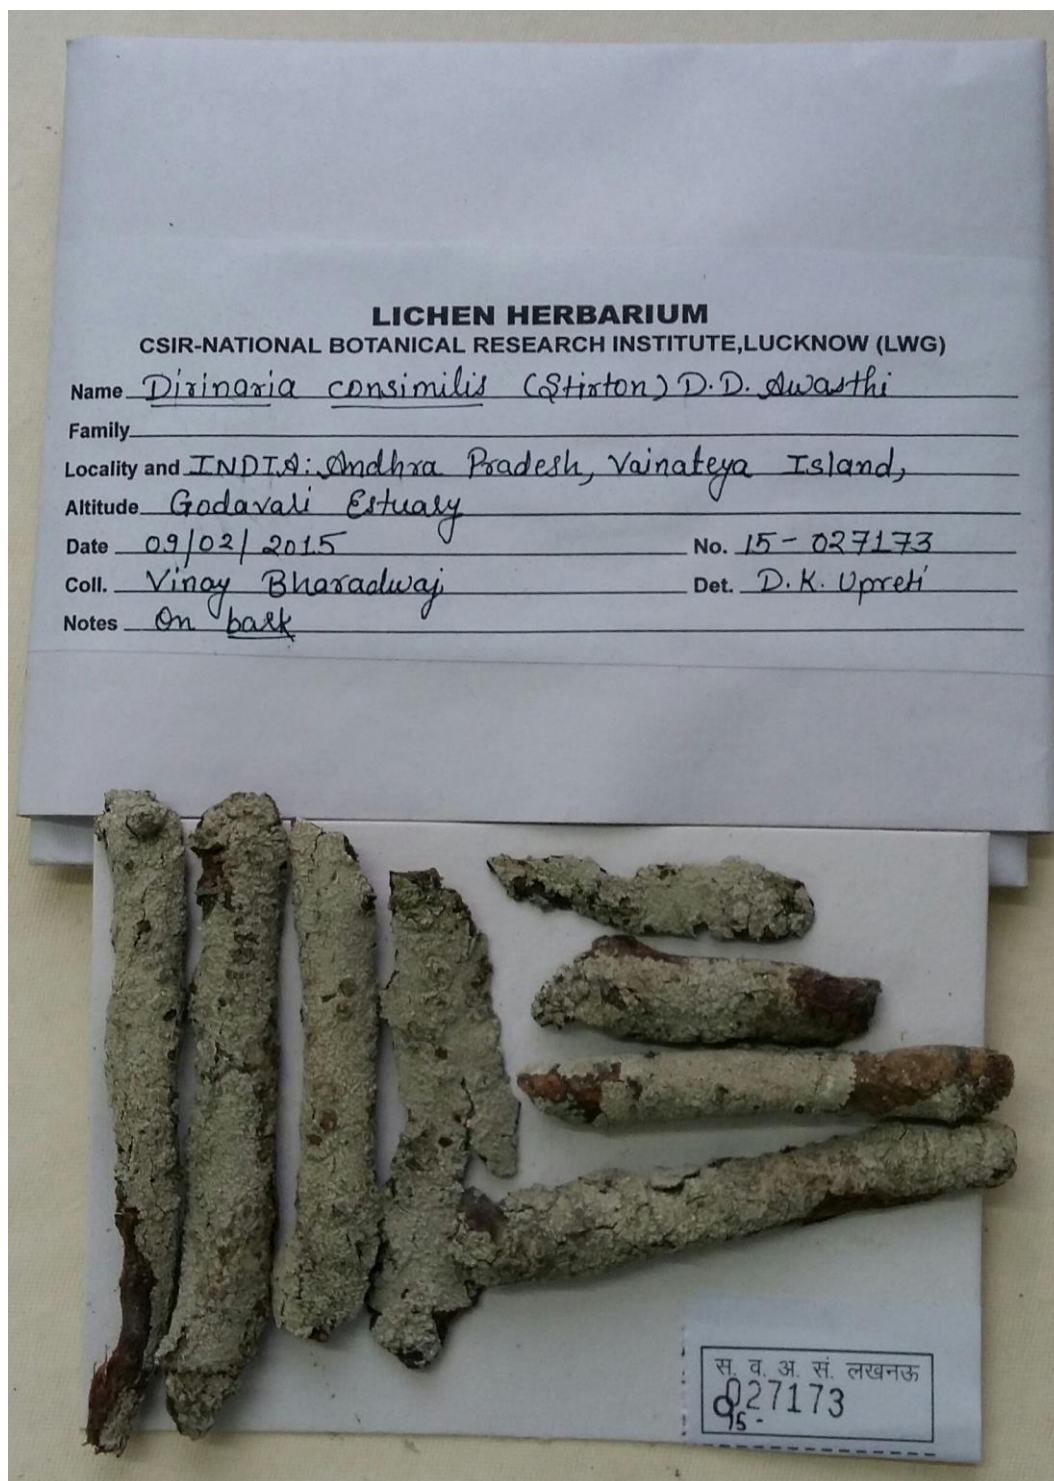 LICHEN HERBARIUM
CSIR-NATIONAL BOTANICAL RESEARCH INSTITUTE,LUCKNOW (LWG)
Name Dirinaria consimilis (Stirton) D.D. Awasthi
Family
Locality and INDIA: Andhra Pradesh, Vainateya Island,
Altitude Godavari Estuary
Date 09/02/2015 No. 15-027173
Coll. Vinay Bharadwaj Det. D.K. Upreti
Notes On bark
स. व. अ. सं. लखनऊ
027173